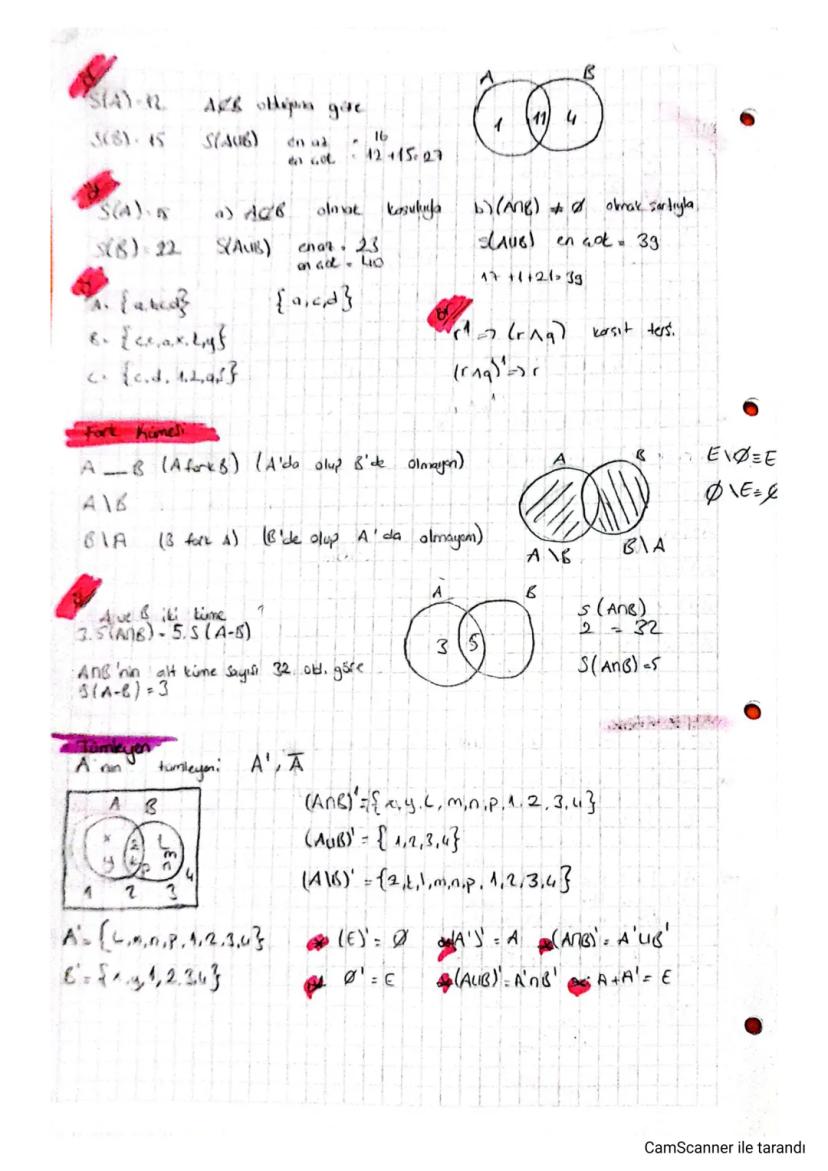 S(A)=12 A⊄B olduğuna göre
S(B)=15 S(A∪B) en az = 16
en çok = 12+15=27
A B
1 11 4
S(A)=18 a) A⊄B olmak koşuluyla
S(B)=22 S(A∪B) en az = 23
en çok = 40
b) (A∩B) ≠ ∅ olmak şartıyla
S(A∪B) en çok = 39
17+1+21=39
A= {a,b,c,d} {a,c,d}
B=
C=
r' => (r∧q) karşıt ters.
(r∧q)' => r
Fark Kümesi
A — B (A fark B) (A'da olup B'de olmayan)
A\B
B\A (B fark A) (B'de olup A'da olmayan)
A B
A\B B\A
E\∅=E
∅\E=∅
A ve B iki küme
3.S(A∩B) = 5.S(A-B)
A∩B'nin alt küme sayısı 32 old. göre
S(A-B)=3
A B
3 5
S(A∩B)
2 = 32
S(A∩B)=5
Tümleyen
A'nın tümleyeni A', A̅
A B
x y L m n p
1 2 3 4
(A∩B)'={x,y,L,m,n,p,1,2,3,4}
(A∪B)' = {1,2,3,4}
(A\B)' = {z,t,l,m,n,p,1,2,3,4}
A'= {L,m,n,p,1,2,3,4}
B'= {x,y,1,2,3,4}
* (E)' = ∅ * (A')' = A * (A∩B)' = A'∪B'
* ∅' = E * (A∪B)' = A'∩B' * A+A' = E
CamScanner ile tarandı